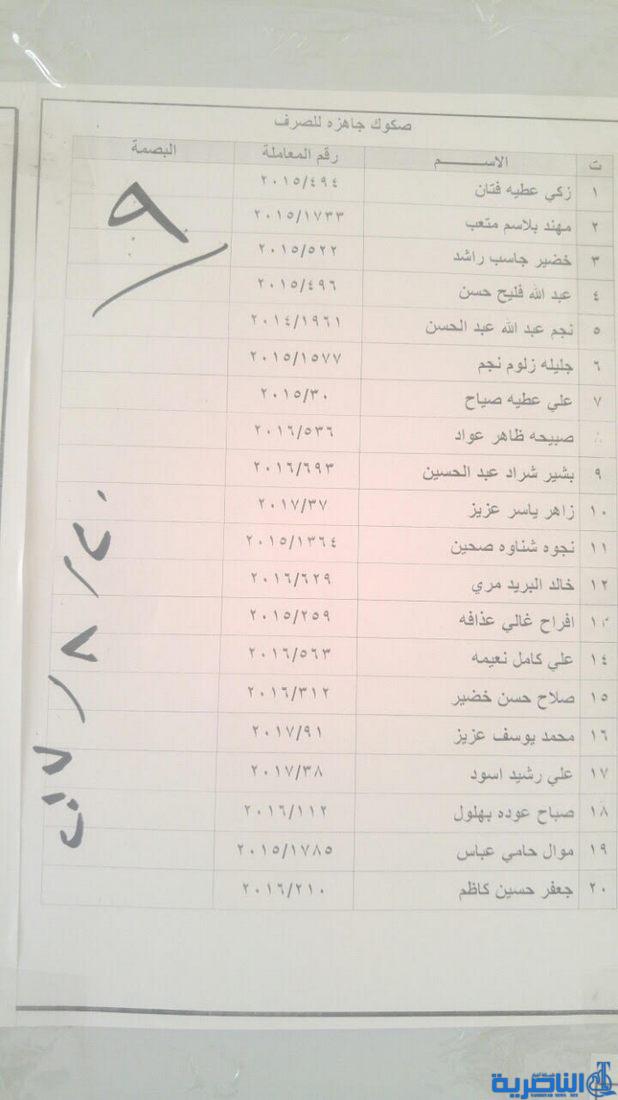 صكوك جاهزه للصرف
ت الاســــــم رقم المعاملة البصمة
١ زكي عطيه فتان ٢٠١٥/٤٩٤
٢ مهند بلاسم متعب ٢٠١٥/١٧٣٣
٣ خضير جاسب راشد ٢٠١٥/٥٢٢
٤ عبد الله فليح حسن ٢٠١٥/٤٩٦
٥ نجم عبد الله عبد الحسن ٢٠١٤/١٩٦١
٦ جليله زلوم نجم ٢٠١٥/١٥٧٧
٧ علي عطيه صياح ٢٠١٥/٣٠
صبيحه ظاهر عواد ٢٠١٦/٥٣٦
٩ بشير شراد عبد الحسين ٢٠١٦/٦٩٣
١٠ زاهر ياسر عزيز ٢٠١٧/٣٧
١١ نجوه شناوه صحين ٢٠١٥/١٣٦٤
١٢ خالد البريد مري ٢٠١٦/٦٢٩
افراح غالي عذافه ٢٠١٥/٢٥٩
١٤ علي كامل نعيمه ٢٠١٦/٥٦٣
١٥ صلاح حسن خضير ٢٠١٦/٣١٢
١٦ محمد يوسف عزيز ٢٠١٧/٩١
١٧ علي رشيد اسود ٢٠١٧/٣٨
١٨ صباح عوده بهلول ٢٠١٦/١١٢
١٩ موال حامي عباس ٢٠١٥/١٧٨٥
٢٠ جعفر حسين كاظم ٢٠١٦/٢١٠
٩
الناصرية